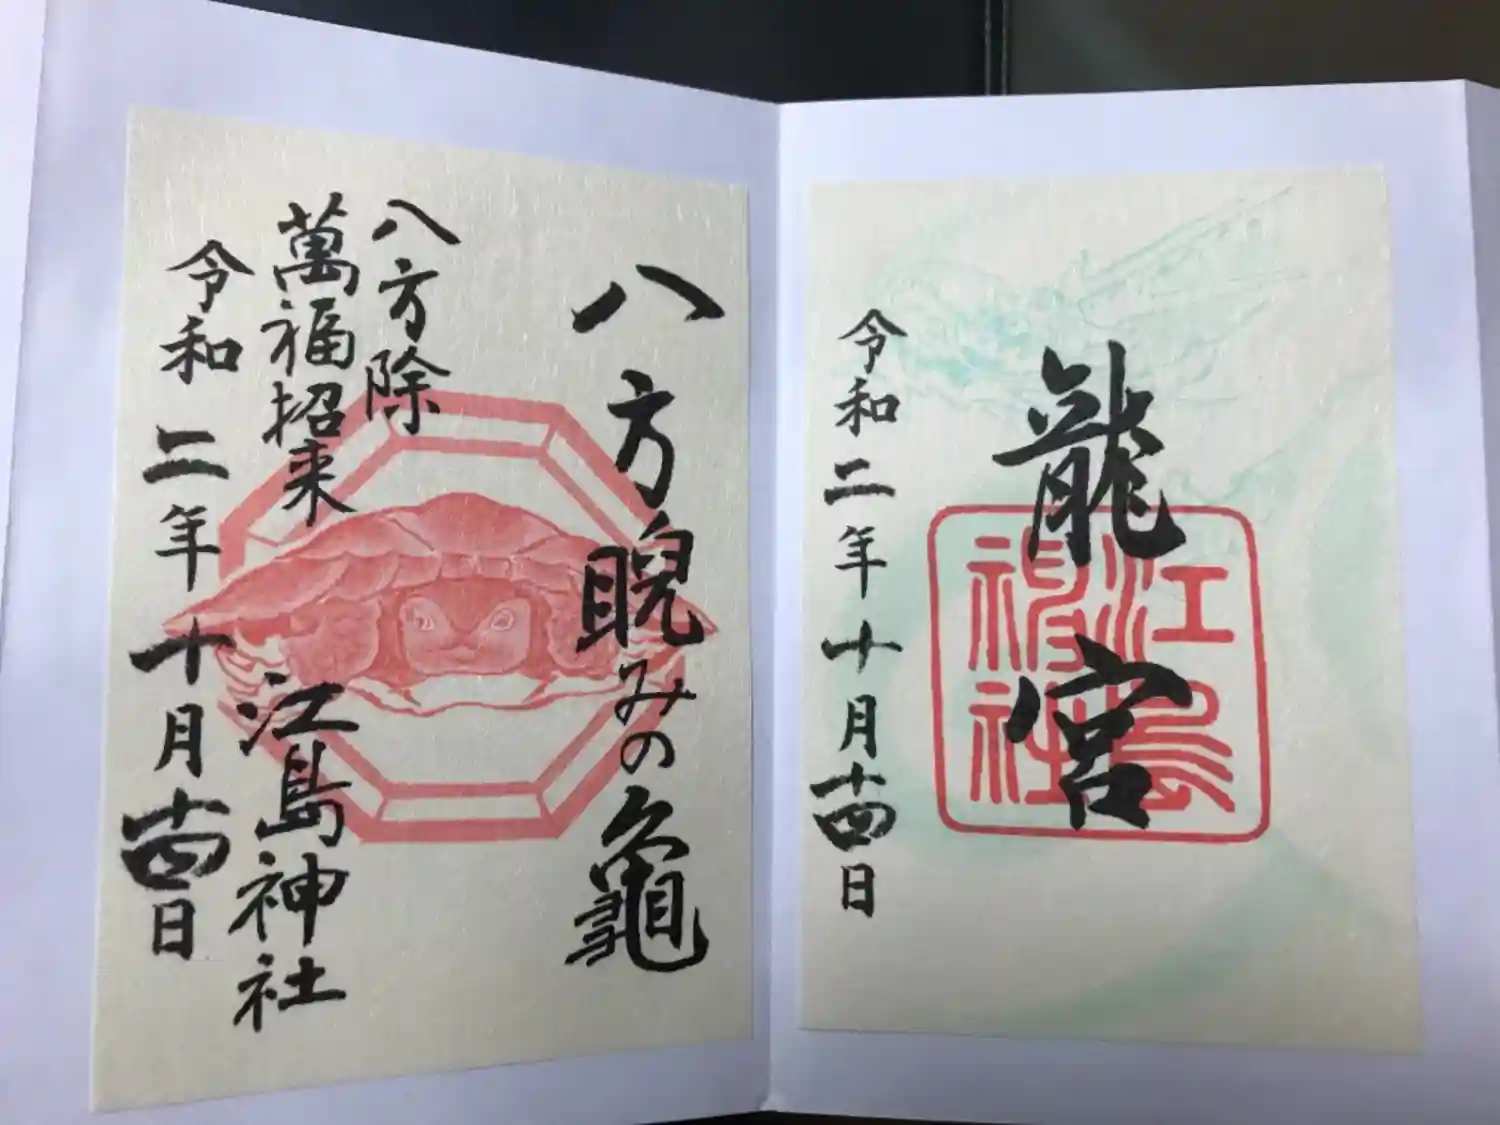 龍宮
江島神社
令和二年十月十四日
八方睨みの龜
八方除
萬福招来
江島神社
令和二年十月十四日